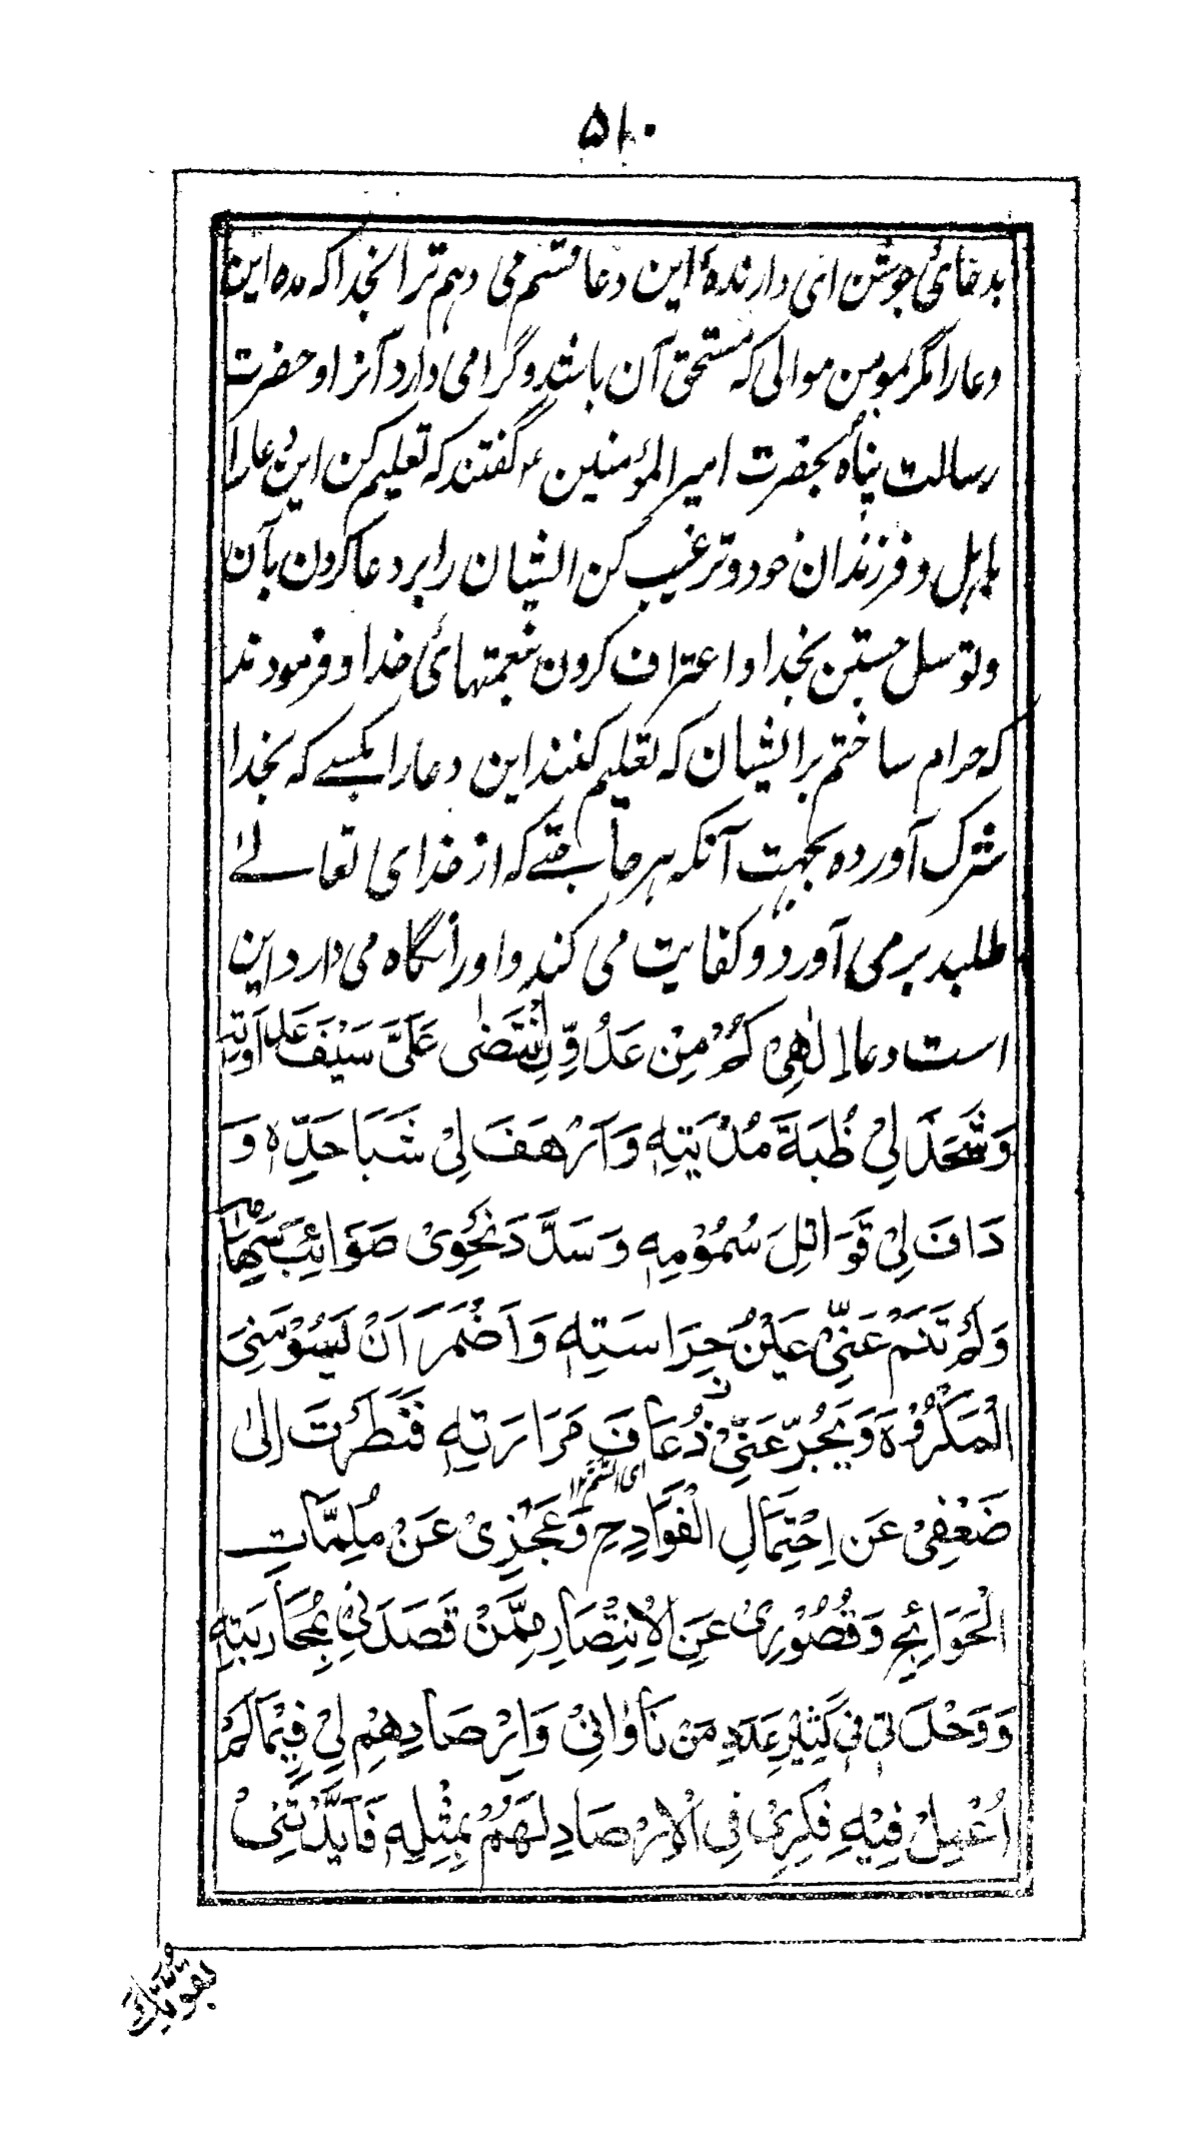 ۵۱۰
بدعائی جوشن ای دارندهٔ این دعا قسم می دهم ترا بخدا که مده این
دعا را مگر بمومن موالی که مستحق آن باشد و گرامی دارد آنرا و حضرت
رسالت پناه بحضرت امیر المؤمنین ع گفتند که تعلیم کن این دعا را
باہل و فرزندان خود و ترغیب کن ایشان را بر دعا کردن بآن
و توسل جستن بخدا و اعتراف کردن بنعمتهائ خدا و فرمودند
که حرام ساختم بر ایشان که تعلیم کنند این دعا را بکسے که بخدا
شرک آورده بجهت آنکه هر حاجتے که از خدای تعالےٰ
طلبد بر می آورد و کفایت می کند و او را نگاه می دارد این
است دعا اِلٰهِیْ کَمْ مِنْ عَدُوٍّ اِنْتَضٰی عَلَیَّ سَیْفَ عَدَاوَتِهٖ
وَشَحَذَ لِیْ ظُبَةَ مُدْیَتِهٖ وَاَرْهَفَ لِیْ شَبَاحَدِّهٖ وَ
دَافَ لِیْ قَوَاتِلَ سُمُوْمِهٖ وَسَدَّدَ نَحْوِیْ صَوَائِبَ سِهَامِهٖ
وَلَمْ تَنَمْ عَنِّیْ عَیْنُ حِرَاسَتِهٖ وَاَضْمَرَ اَنْ یَسُوْمَنِیَ
الْمَکْرُوْهَ وَیُجَرِّعَنِیْ ذُعَافَ مَرَارَتِهٖ فَنَظَرْتَ اِلیٰ
ای السّمّ ۱۲
ضَعْفِیْ عَنِ احْتِمَالِ الْفَوَادِحِ وَعَجْزِیْ عَنْ مُلِمَّاتِ
الْحَوَائِجِ وَقُصُوْرِیْ عَنِ الْاِنْتِصَارِ مِمَّنْ قَصَدَنِیْ بِمُحَارَبَتِهٖ
وَوَحْدَتِیْ فِیْ کَثِیْرِ عَدَدِ مَنْ نَاوَانِیْ وَاِرْصَادِهِمْ لِیْ فِیْمَا لَمْ
اُعْمِلْ فِیْهِ فِکْرِیْ فِی الْاِرْصَادِ لَهُمْ بِمِثْلِهٖ فَاَیَّدْتَنِیْ
بِقُوَّتِکَ